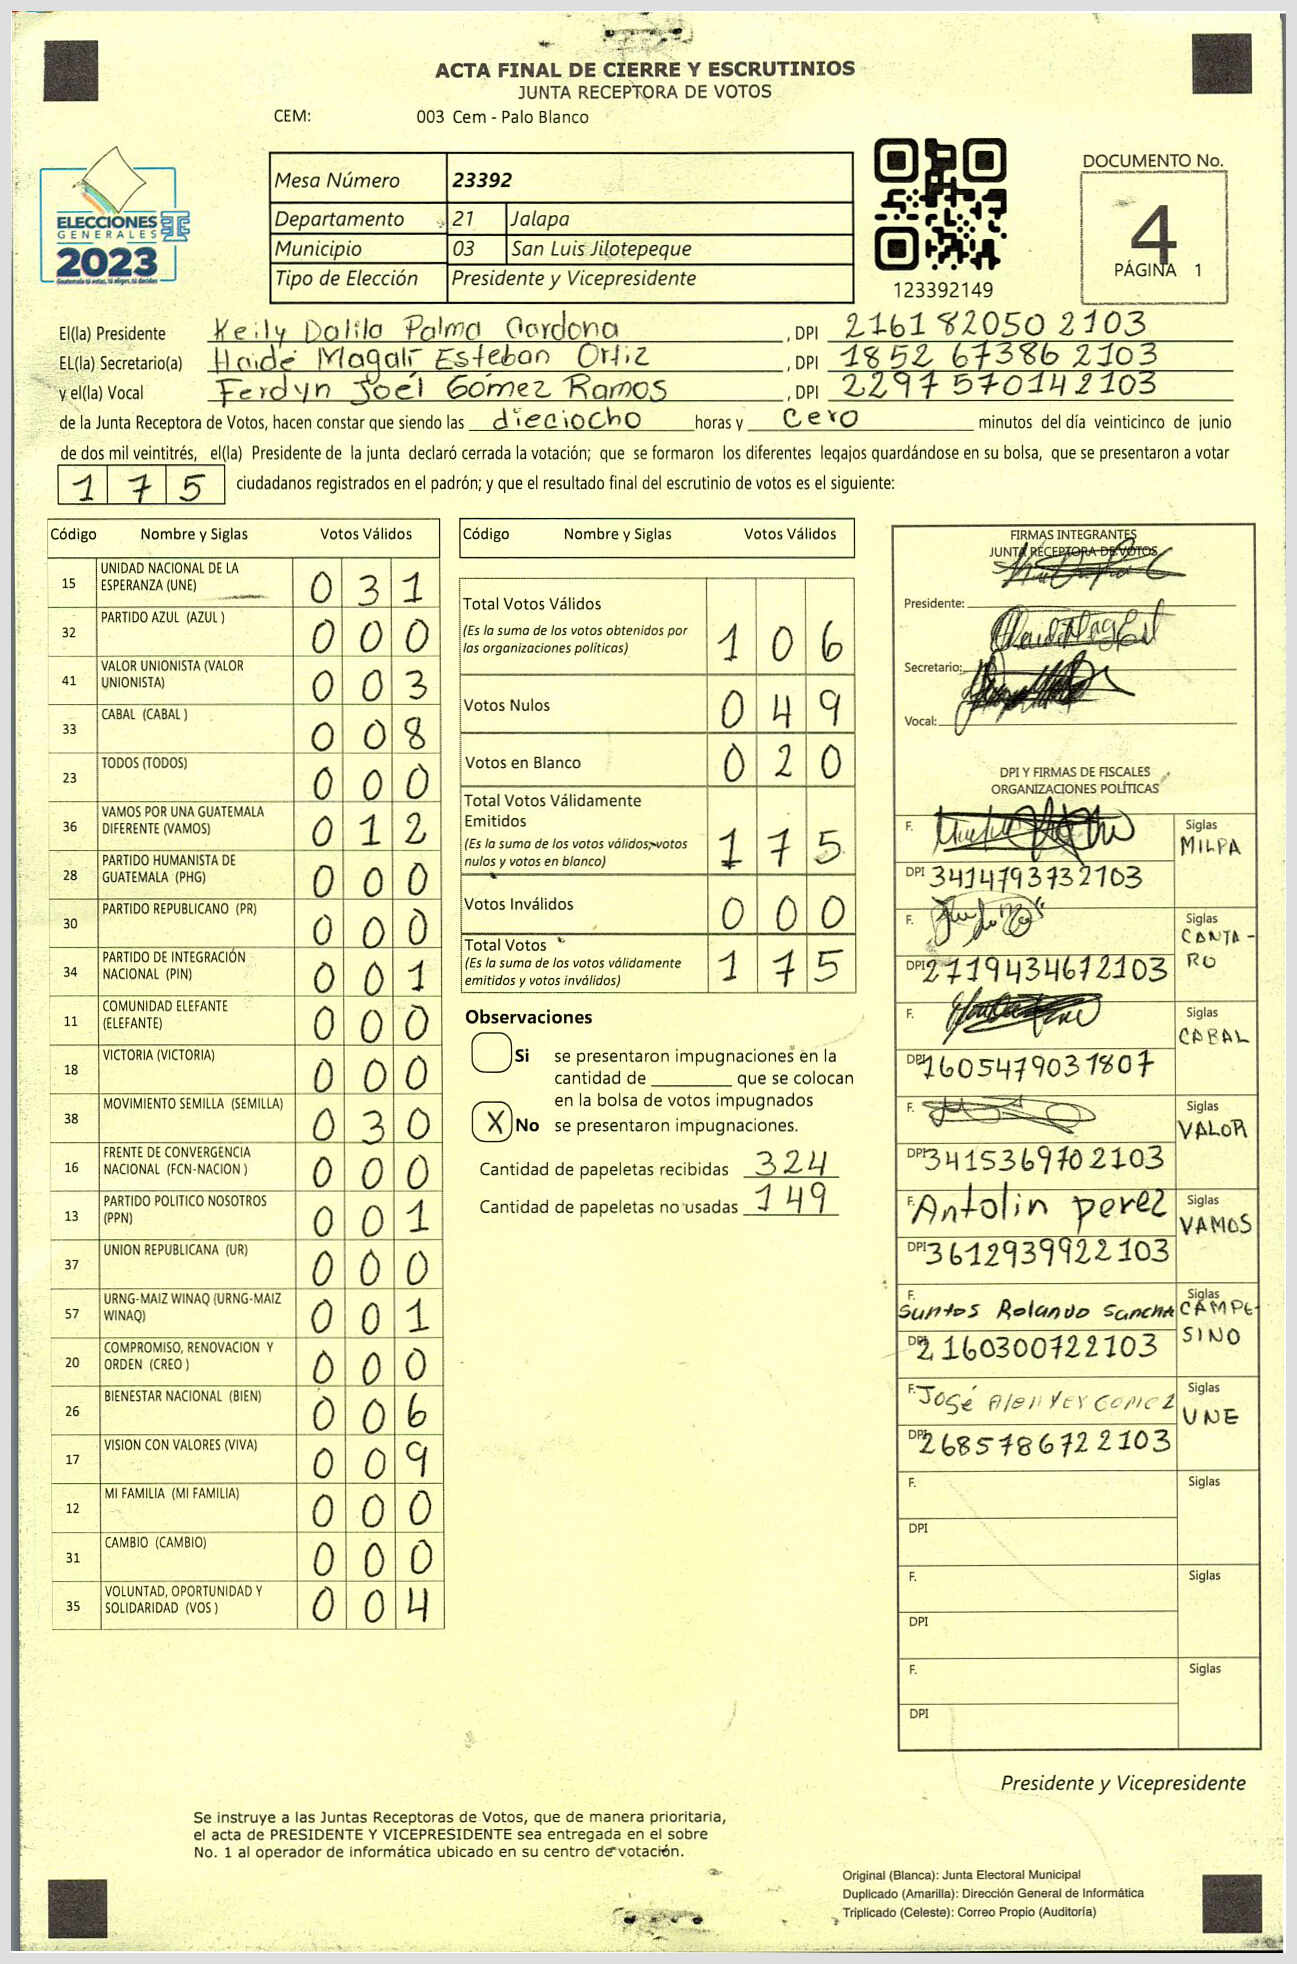 ACTA FINAL DE CIERRE Y ESCRUTINIOS
JUNTA RECEPTORA DE VOTOS
CEM: 003 Cem - Palo Blanco
ELECCIONES
GENERALES
2023
Guatemala tú votas, tú eliges, tú decides
Mesa Número 23392
Departamento 21 Jalapa
Municipio 03 San Luis Jilotepeque
Tipo de Elección Presidente y Vicepresidente
123392149
DOCUMENTO No.
4
PÁGINA 1
El(la) Presidente Keily Dalila Palma Cardona, DPI 2161 82050 2103
EL(la) Secretario(a) Haide Magalí Esteban Ortiz, DPI 1852 67386 2103
y el(la) Vocal Ferdyn Joel Gómez Ramos, DPI 2297 57014 2103
de la Junta Receptora de Votos, hacen constar que siendo las dieciocho horas y cero minutos del día veinticinco de junio
de dos mil veintitrés, el(la) Presidente de la junta declaró cerrada la votación; que se formaron los diferentes legajos quardándose en su bolsa, que se presentaron a votar
175 ciudadanos registrados en el padrón; y que el resultado final del escrutinio de votos es el siguiente:
Código Nombre y Siglas Votos Válidos
15 UNIDAD NACIONAL DE LA ESPERANZA (UNE) 0 3 1
32 PARTIDO AZUL (AZUL ) 0 0 0
41 VALOR UNIONISTA (VALOR UNIONISTA) 0 0 3
33 CABAL (CABAL ) 0 0 8
23 TODOS (TODOS) 0 0 0
36 VAMOS POR UNA GUATEMALA DIFERENTE (VAMOS) 0 1 2
28 PARTIDO HUMANISTA DE GUATEMALA (PHG) 0 0 0
30 PARTIDO REPUBLICANO (PR) 0 0 0
34 PARTIDO DE INTEGRACIÓN NACIONAL (PIN) 0 0 1
11 COMUNIDAD ELEFANTE (ELEFANTE) 0 0 0
18 VICTORIA (VICTORIA) 0 0 0
38 MOVIMIENTO SEMILLA (SEMILLA) 0 3 0
16 FRENTE DE CONVERGENCIA NACIONAL (FCN-NACION ) 0 0 0
13 PARTIDO POLITICO NOSOTROS (PPN) 0 0 1
37 UNION REPUBLICANA (UR) 0 0 0
57 URNG-MAIZ WINAQ (URNG-MAIZ WINAQ) 0 0 1
20 COMPROMISO, RENOVACION Y ORDEN (CREO ) 0 0 0
26 BIENESTAR NACIONAL (BIEN) 0 0 6
17 VISION CON VALORES (VIVA) 0 0 9
12 MI FAMILIA (MI FAMILIA) 0 0 0
31 CAMBIO (CAMBIO) 0 0 0
35 VOLUNTAD, OPORTUNIDAD Y SOLIDARIDAD (VOS ) 0 0 4
Código Nombre y Siglas Votos Válidos
Total Votos Válidos
(Es la suma de los votos obtenidos por
las organizaciones políticas) 1 0 6
Votos Nulos 0 4 9
Votos en Blanco 0 2 0
Total Votos Válidamente
Emitidos
(Es la suma de los votos válidos, votos
nulos y votos en blanco) 1 7 5
Votos Inválidos 0 0 0
Total Votos
(Es la suma de los votos válidamente
emitidos y votos inválidos) 1 7 5
Observaciones
Si se presentaron impugnaciones en la
cantidad de ________ que se colocan
en la bolsa de votos impugnados
X No se presentaron impugnaciones.
Cantidad de papeletas recibidas 324
Cantidad de papeletas no usadas 149
FIRMAS INTEGRANTES
JUNTA RECEPTORA DE VOTOS
Presidente:
Secretario:
Vocal:
DPI Y FIRMAS DE FISCALES
ORGANIZACIONES POLÍTICAS
F. Siglas MILPA
DPI 3414793732103
F. Siglas CANTA-RO
DPI 2719434672103
F. Siglas CABAL
DPI 1605479031807
F. Siglas VALOR
DPI 3415369702103
F. Antolin perez Siglas VAMOS
DPI 3612939922103
F. Santos Rolando Siglas CAMPE-SINO
DPI 2160300722103
F. José Siglas UNE
DPI 2685786722103
F. Siglas
DPI
F. Siglas
DPI
F. Siglas
DPI
Presidente y Vicepresidente
Se instruye a las Juntas Receptoras de Votos, que de manera prioritaria,
el acta de PRESIDENTE Y VICEPRESIDENTE sea entregada en el sobre
No. 1 al operador de informática ubicado en su centro de votación.
Original (Blanca): Junta Electoral Municipal
Duplicado (Amarilla): Dirección General de Informática
Triplicado (Celeste): Correo Propio (Auditoría)